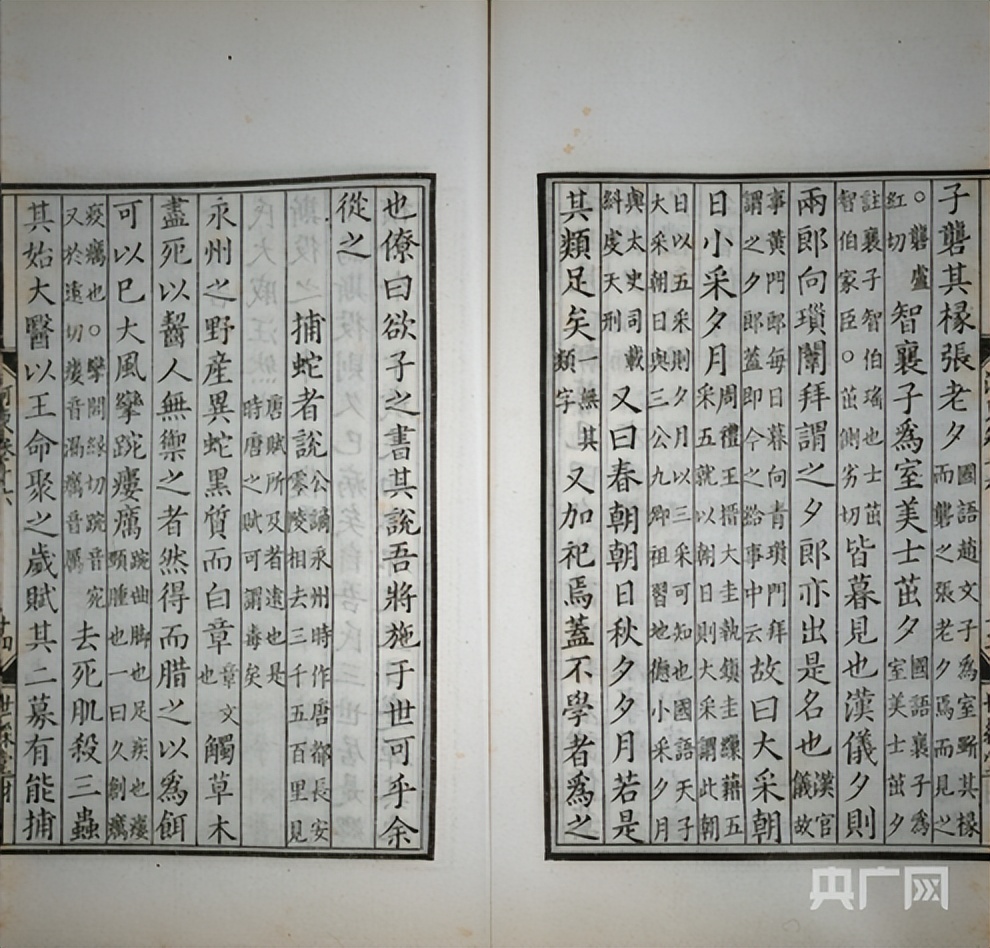 子礱其椽張老夕國語趙文子為室斲其椽而礱之張老夕焉而見之
○礱盧紅切智襄子為室美士茁夕國語襄子為室美士茁夕
註襄子智伯瑤也士茁智伯家臣○茁側劣切皆暮見也漢儀夕則
兩郎向瑣闈拜謂之夕郎亦出是名也漢官儀故
事黃門郎每日暮向青瑣門拜謂之夕郎蓋即今之給事中云故曰大采朝
日小采夕月周禮王搢大圭執鎮圭繅藉五采五就以朝日則大采謂此朝
日以五采則夕月以三采可知也國語天子大采朝日與三公九卿祖習地德小采夕月
與太史司載糾虔天刑又曰春朝朝日秋夕夕月若是
其類足矣一無其類字又加祀焉蓋不學者為之
也僚曰欲子之書其說吾將施于世可乎余
從之
捕蛇者說公謫永州時作唐都長安零陵相去三千五百里見
唐賦所及者遠也是時唐之賦可謂毒矣
永州之野産異蛇黑質而白章章文也觸草木
盡死以齧人無禦之者然得而腊之以為餌
可以已大風攣踠瘻癘踠曲脚也足疾也瘻頸腫也一曰久創癘
疫癘也○攣閭緣切踠音宛又於遠切瘻音漏癘音厲去死肌殺三蟲
其始大醫以王命聚之歲賦其二募有能捕
央广网